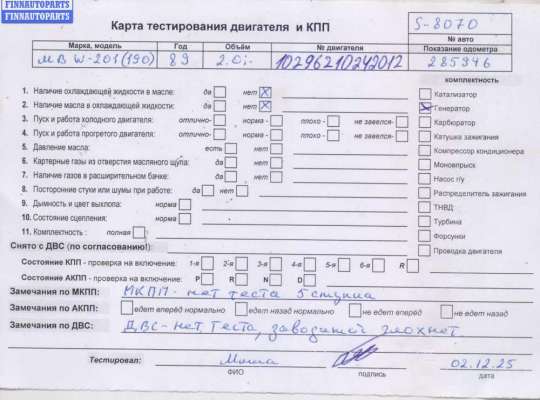 FINNAUTOPARTS
FINNAUTOPARTS
Карта тестирования двигателя и КПП
S-8070
№ авто
Марка, модель Год Объём № двигателя Показание одометра
МВ W-201(190) 89 2.0i- 10296210242012 285946
комплектность
1. Наличие охлаждающей жидкости в масле: да нет Катализатор
2. Наличие масла в охлаждающей жидкости: да нет Генератор
3. Пуск и работа холодного двигателя: отлично- норма - плохо - не завелся- Карбюратор
4. Пуск и работа прогретого двигателя: отлично- норма - плохо - не завелся- Катушка зажигания
5. Давление масла: есть нет Компрессор кондиционера
6. Картерные газы из отверстия масляного щупа: да нет Моновпрыск
7. Наличие газов в расширительном бачке: да нет Насос г/у
8. Посторонние стуки или шумы при работе: да нет Распределитель зажигания
9. Дымность и цвет выхлопа: норма ТНВД
10. Состояние сцепления: норма Турбина
11. Комплектность : полная Форсунки
Проводка двигателя
Снято с ДВС (по согласованию!):
Состояние КПП - проверка на включение: 1-я 2-я 3-я 4-я 5-я 6-я R
Состояние АКПП - проверка на включение: P R N D
Замечания по МКПП: МКПП - нет теста 5 ступка
Замечания по АКПП: едет вперёд нормально едет назад нормально не едет вперёд не едет назад
Замечания по ДВС: ДВС - нет теста, заводится глохнет
Тестировал: 02.12.25
ФИО подпись дата